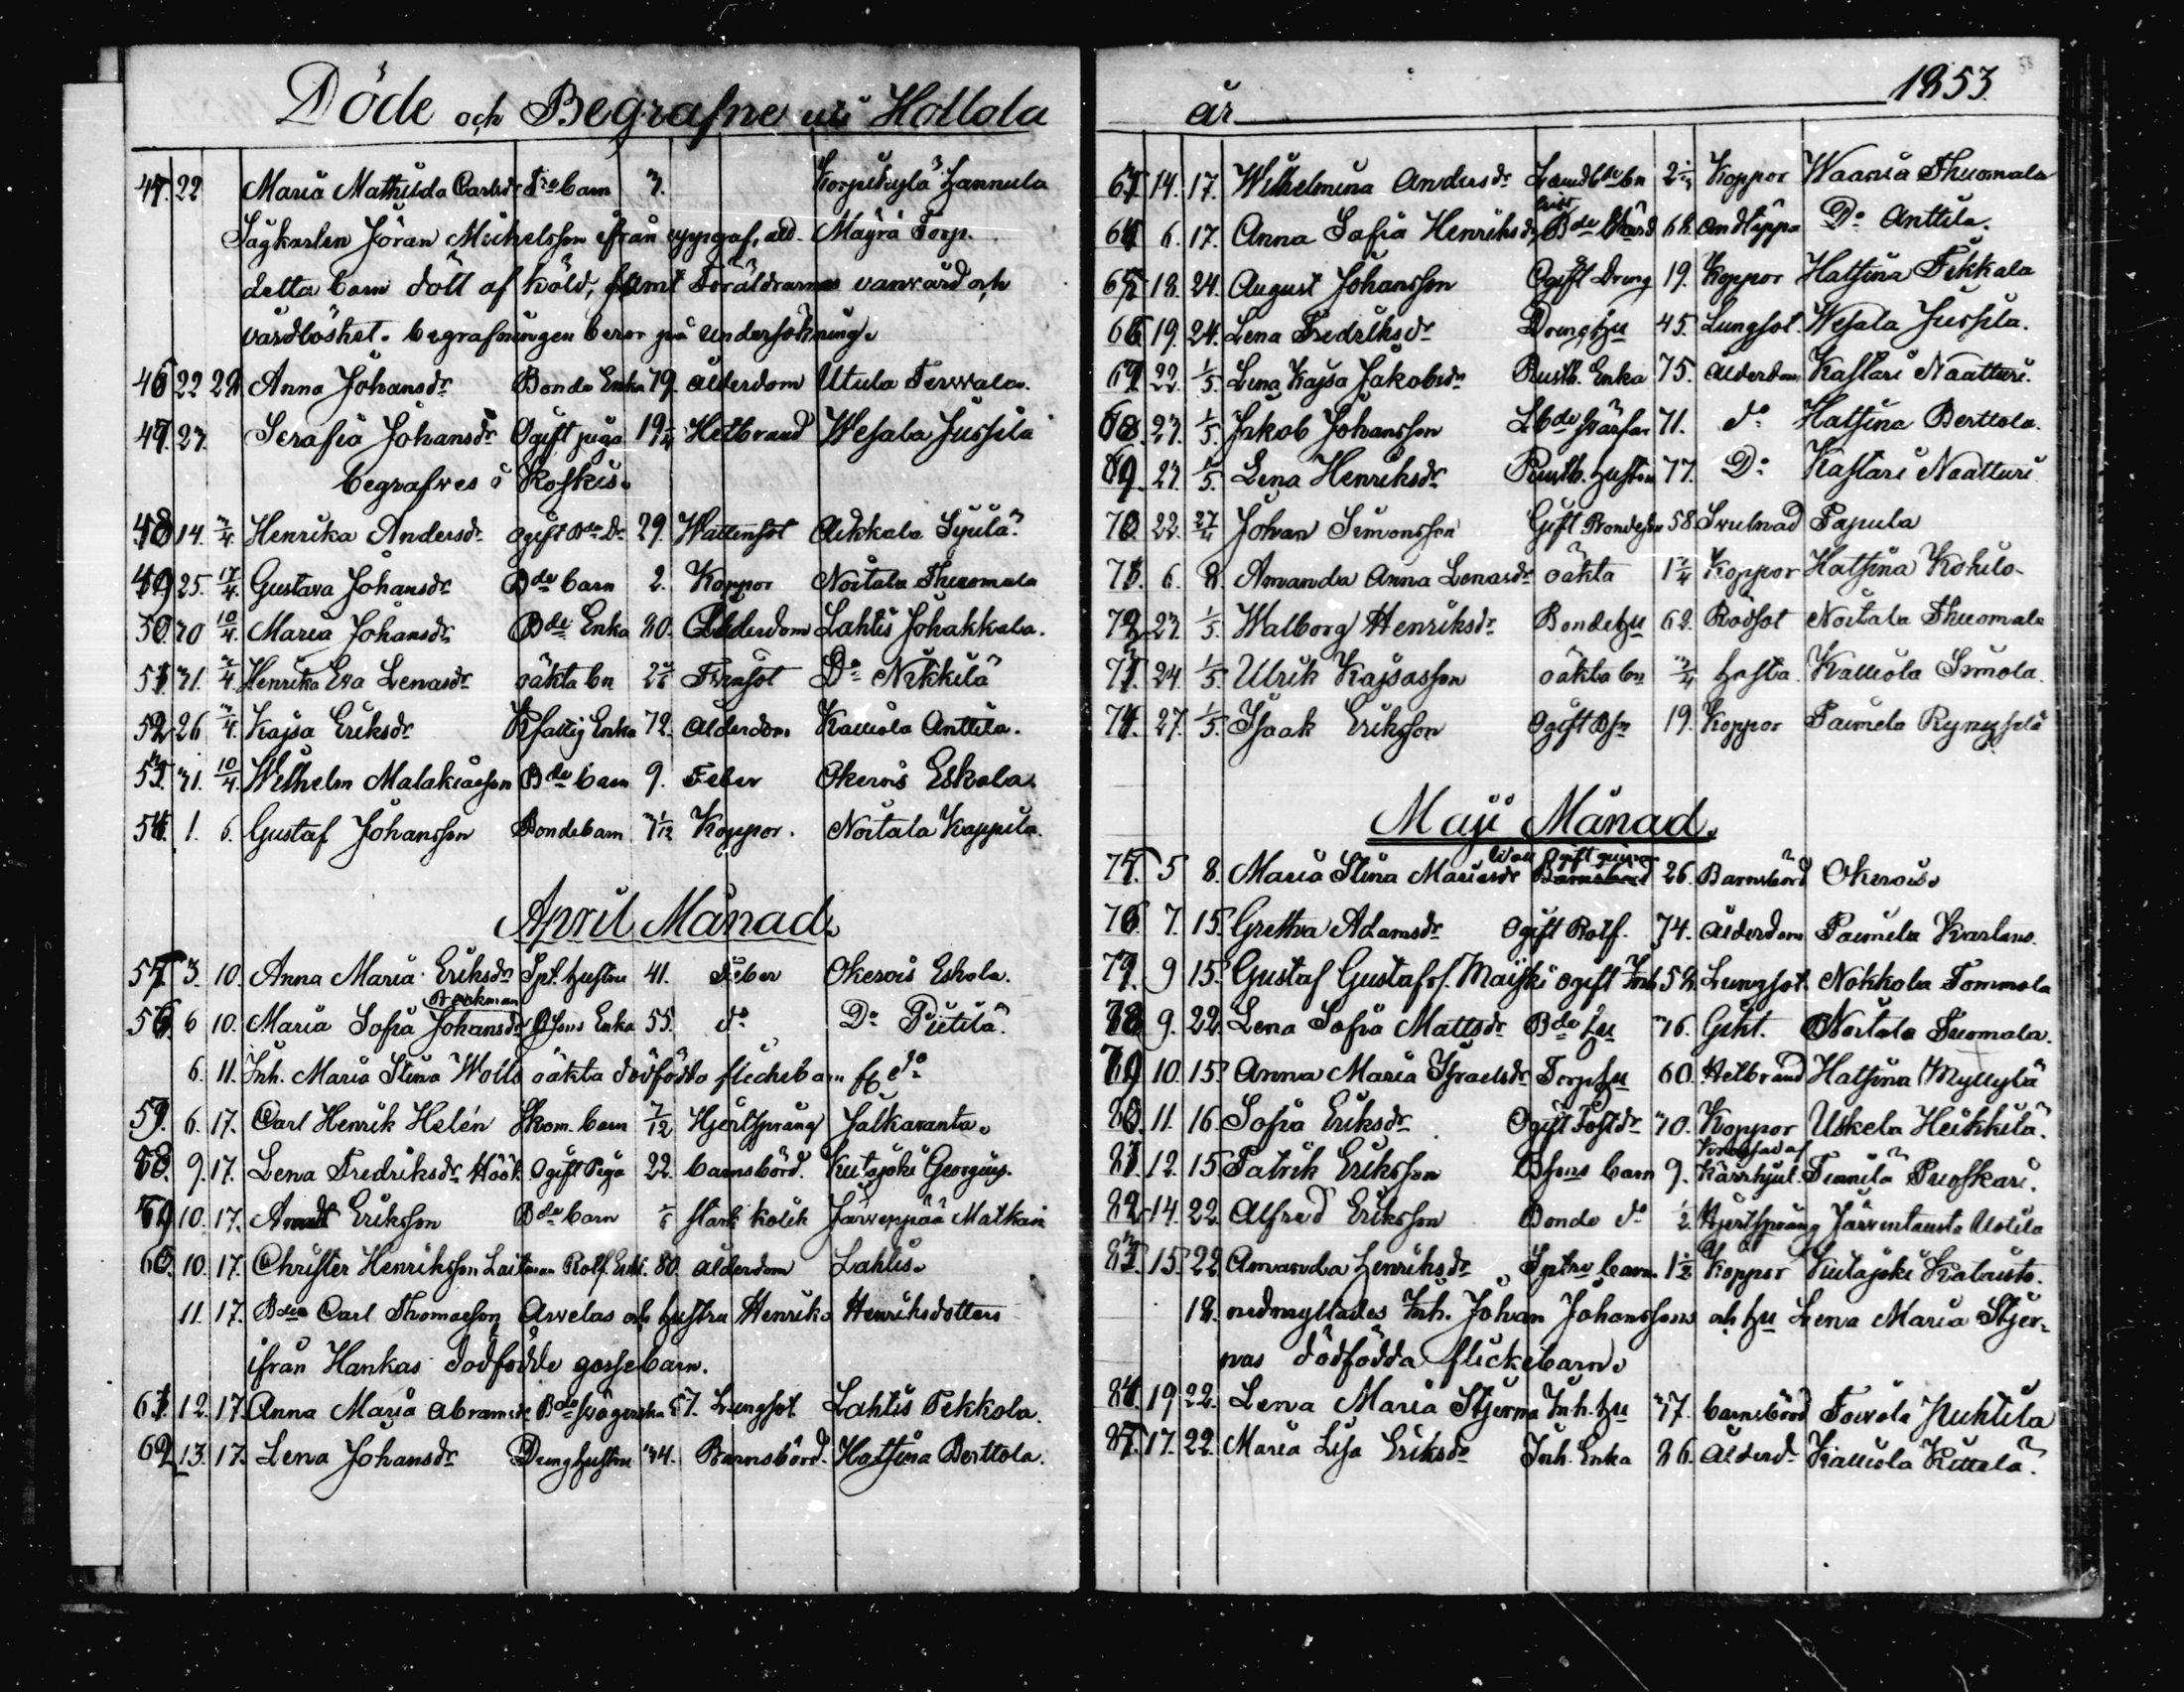 Döde och Begrafne uti Hollola
22 Maria Mathilda Carlsdr barn 3. Korpikylä Hannula
Sågkarlen Jöran Michelsson ifrån uppgaf, att Mäyrä Torp.
detta barn dött af köld, samt Föräldrarnes vanvård och
vårdlöshet. begrafningen beror på undersökning.
46 22 29 Anna Johansdr Bonde Enka 79. ålderdom Utula Terwala.
47. 27. Serafia Johansdr Ogift piga 19 Hetbrand Wesala Jussila
begrafves i Koskis.
48 14. 3/4. Henrika Andersdr Ogift Bde Dr 29. Wattensot Aikkala Sipilä
49 25. 17/4. Gustava Johansdr Bde barn 2. Koppor Noitala Thuomala
50. 30 10/4. Maria Johansdr Bde Enka 80. Ålderdom Lahtis Johakkala.
51 31. 3/4. Henrika Eva Lenasdr oäkta bn Twinsot Do Nikkilä
52 26 3/4. Kajsa Eriksdr Enka 72. Ålderdom Kalliola Anttila.
53. 31. 10/4. Wilhelm Malakiasson Bde barn 9. Feber Okerois Eskola.
54. 1. 6. Gustaf Johansson Bondebarn 3/12 Koppor. Noitala Kappila.
April Månad.
55. 3. 10. Anna Maria Eriksdr hustru 41. Feber Okerois Eskola.
Brakman
56. 6 10. Maria Sofia Johansdr Enka 55. do Do Pietilä.
6. 11. Inh. Maria Stina Wolls oäkta dödfödda flickebarn fr. do
57. 6. 17. Carl Henrik Helén Skom. barn 7/12 Hjertsprång Jalkaranta.
58. 9. 17. Lena Fredriksdr Höök Ogift Piga 22. barnsbörd. Kutajoki Georgus.
59 10. 17. Eriksson Bde barn stark kolik Järwenpää Matkain
60. 10. 17. Christer Henriksson Laitinen Rotf. Enk. 80. ålderdom Lahtis.
11. 17. Bden Carl Thomasson Arvelas och hustru Henrika Henriksdotters
ifrån Hankas dödfödde gossebarn.
61. 12. 17. Anna Maria Abramsdr Bde svägerska 57. Lungsot Lahtis Pekkola.
62 13. 17. Lena Johansdr Dreng hustru 34. Barnsbörd. Hatsina Berttola.
år 1853.
63. 14. 17. Wilhelmina Andersdr Landbde bn 2 Koppor Waania Thuomala
64 6. 17. Anna Sofia Henriksdr Bde 68. andtäppa Do Anttila.
65. 18. 24. August Johansson Ogift Dreng 19. Koppor Hatsina Tekkala
66 19. 24. Lena Fredriksdr Dreng hu 45. Lungsot. Wesala Jussila.
67. 22. 1/5. Lena Kajsa Jakobsdr Rusth. Enka 75. Ålderdom Kastari Naatturi.
68. 27. 1/5. Jakob Johansson Lbde svärfar 71. do Hatsina Berttola.
69. 27. 1/5. Lena Henriksdr Rusth. hustru 77. Do Kastari Naatturi
70. 22. 27/4 Johan Simonsson Gift Bondeson 58. Swulnad Papula
71. 6. 8. Amanda Anna Lenasdr oäkta Koppor Hatsina Kokilo
72. 27. 1/5. Walborg Henriksdr Bondehu 62. Rödsot Noitala Thuomala
73. 24. 1/5. Ulrik Kajsasson oäkta bn 3/4 hosta. Kalliola Simola.
74. 27. 1/5. Isaak Eriksson Ogift Bsn 19. Koppor Paimela Rynysilä
Maji Månad.
Ogift
75. 5 8. Maria Stina Mariasdr 26. Barnsbörd Okerois.
76. 7. 15. Grettha Adamsdr Ogift Rotf. 74. Ålderdom Paimela Karlans.
77. 9 15. Gustaf Gustafs. Maijski Ogift Inh 58. Lungsot. Nokkola Tommola
78. 9. 22. Lena Sofia Mattsdr Bde hu 36. Gikt. Noitala Tuomala.
79 10. 15. Anna Maria Israelsdr Torp hu 60. Hetbrand Hatsina Myllylä
80. 11. 16. Sofia Eriksdr Ogift Fostdr 30. Koppor Uskela Heikkilä.
Krossad af
81. 12. 15. Patrik Eriksson Bsons barn 9. Kärrhjul. Tiinilä Puoskari.
82. 14. 22. Alfred Eriksson Bonde do 1/2. Hjertsprång Järventausta Uotila
83. 15. 22 Amanda Henriksdr barn 1 1/2 Koppor Kutajoki Kalaisto.
18. nedmyllades Inh. Johan Johanssons och hu Lena Maria Stjer-
nas dödfödda flickebarn.
84. 19 22. Lena Maria Stjerna Inh. hu 37. barnsbörd Toivola Huhtila
85. 17. 22. Maria Lisa Eriksdr Inh. Enka 86. Ålderd. Kalliola Kittelä.